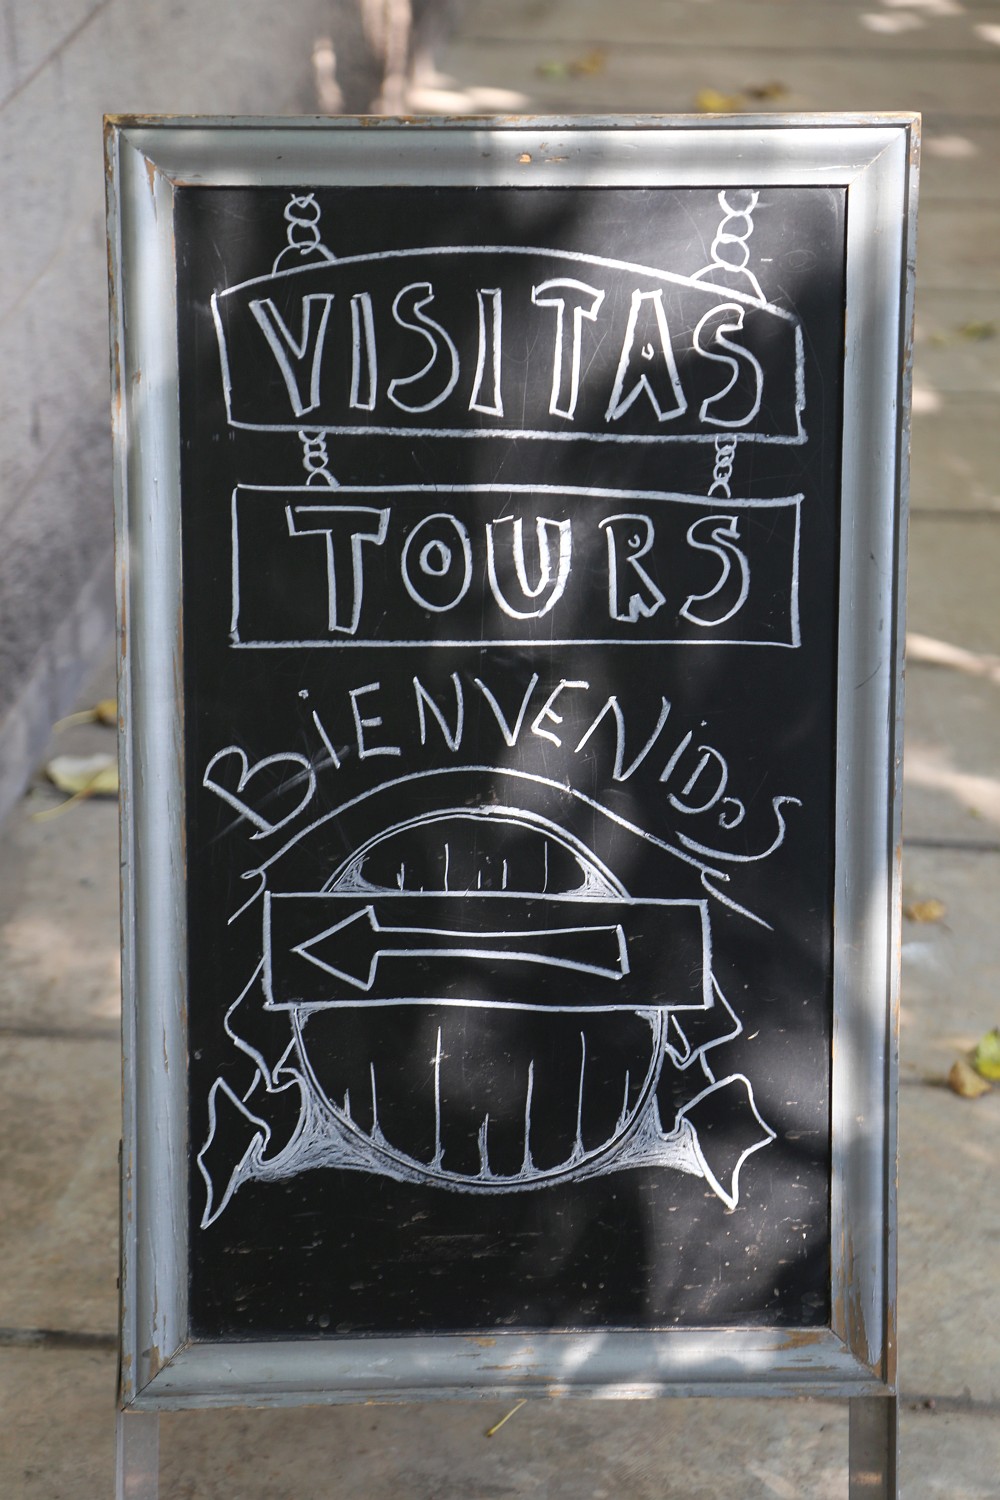 VISITAS
TOURS
BIENVENIDOS